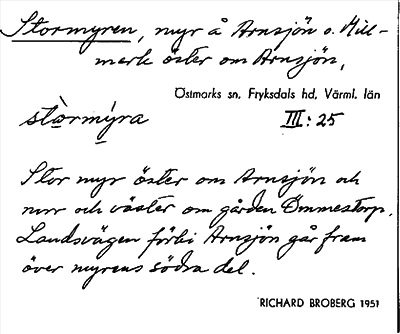 Stormyren, myr å Arnsjön o. Hill-
mark öster om Arnsjön,
Östmarks sn, Fryksdals hd, Värml. län
stòrmýra III: 25
Stor myr öster om Arnsjön och
norr och väster om gården Ömmestorp.
Landsvägen förbi Arnsjön går fram
över myrens södra del.
RICHARD BROBERG 1951